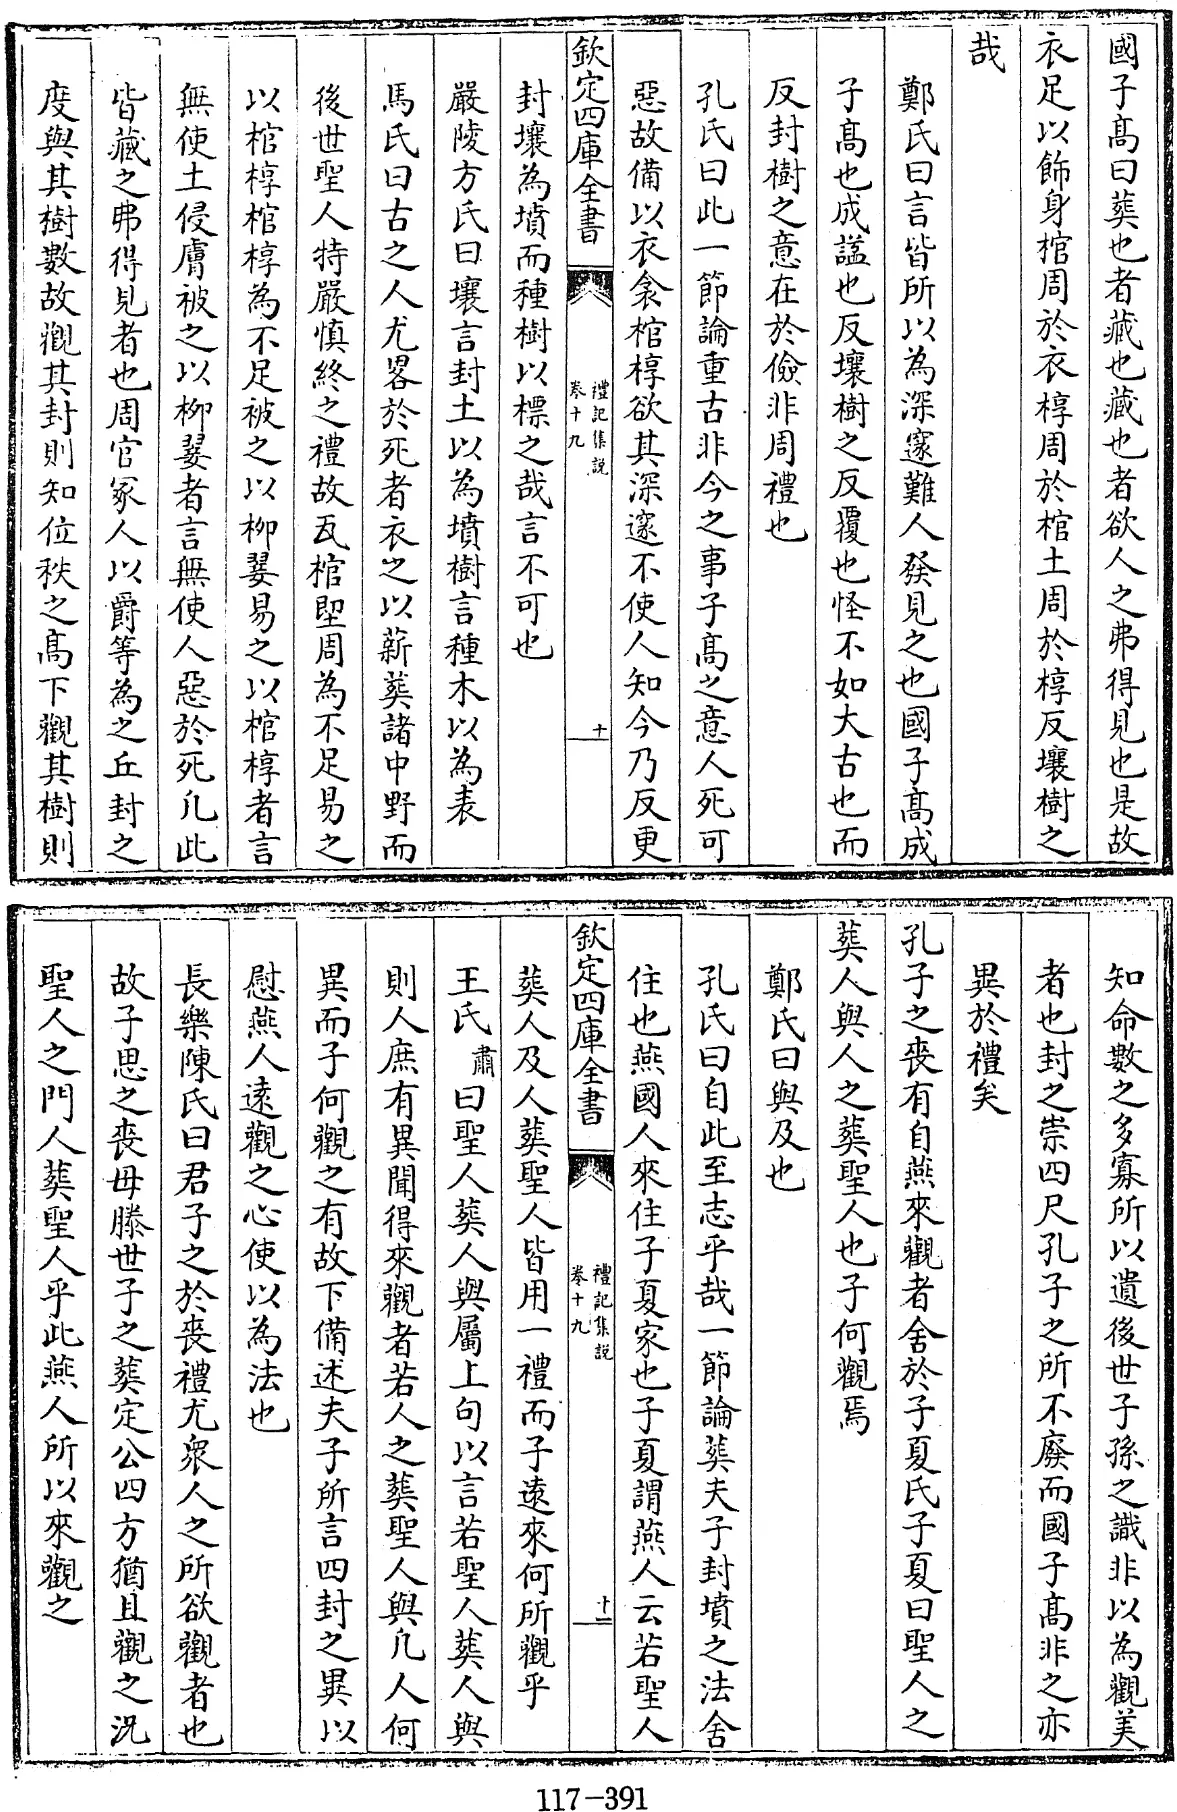 國子髙曰葬也者藏也藏也者欲人之弗得見也是故
衣足以飾身棺周於衣椁周於棺土周於椁反壤樹之
哉
鄭氏曰言皆所以為深邃難人發見之也國子髙成
子髙也成諡也反壤樹之反覆也怪不如大古也而
反封樹之意在於儉非周禮也
孔氏曰此一節論重古非今之事子髙之意人死可
惡故備以衣衾棺椁欲其深邃不使人知今乃反更
欽定四庫全書
禮記集説
卷十九
十
封壤為墳而種樹以標之哉言不可也
嚴陵方氏曰壤言封土以為墳樹言種木以為表
馬氏曰古之人尤畧於死者衣之以薪葬諸中野而
後世聖人特嚴慎終之禮故瓦棺堲周為不足易之
以棺椁棺椁為不足被之以柳翣易之以棺椁者言
無使土侵膚被之以柳翣者言無使人惡於死凡此
皆藏之弗得見者也周官冢人以爵等為之丘封之
度與其樹數故觀其封則知位秩之髙下觀其樹則
知命數之多寡所以遺後世子孫之識非以為觀美
者也封之崇四尺孔子之所不廢而國子髙非之亦
異於禮矣
孔子之喪有自燕來觀者舍於子夏氏子夏曰聖人之
葬人與人之葬聖人也子何觀焉
鄭氏曰與及也
孔氏曰自此至志乎哉一節論葬夫子封墳之法舍
住也燕國人來住子夏家也子夏謂燕人云若聖人
欽定四庫全書
禮記集説
卷十九
十一
葬人及人葬聖人皆用一禮而子遠來何所觀乎
王氏肅曰聖人葬人與屬上句以言若聖人葬人與
則人庶有異聞得來觀者若人之葬聖人與凡人何
異而子何觀之有故下備述夫子所言四封之異以
慰燕人遠觀之心使以為法也
長樂陳氏曰君子之於喪禮尤衆人之所欲觀者也
故子思之喪母滕世子之葬定公四方猶且觀之況
聖人之門人葬聖人乎此燕人所以來觀之
117-391